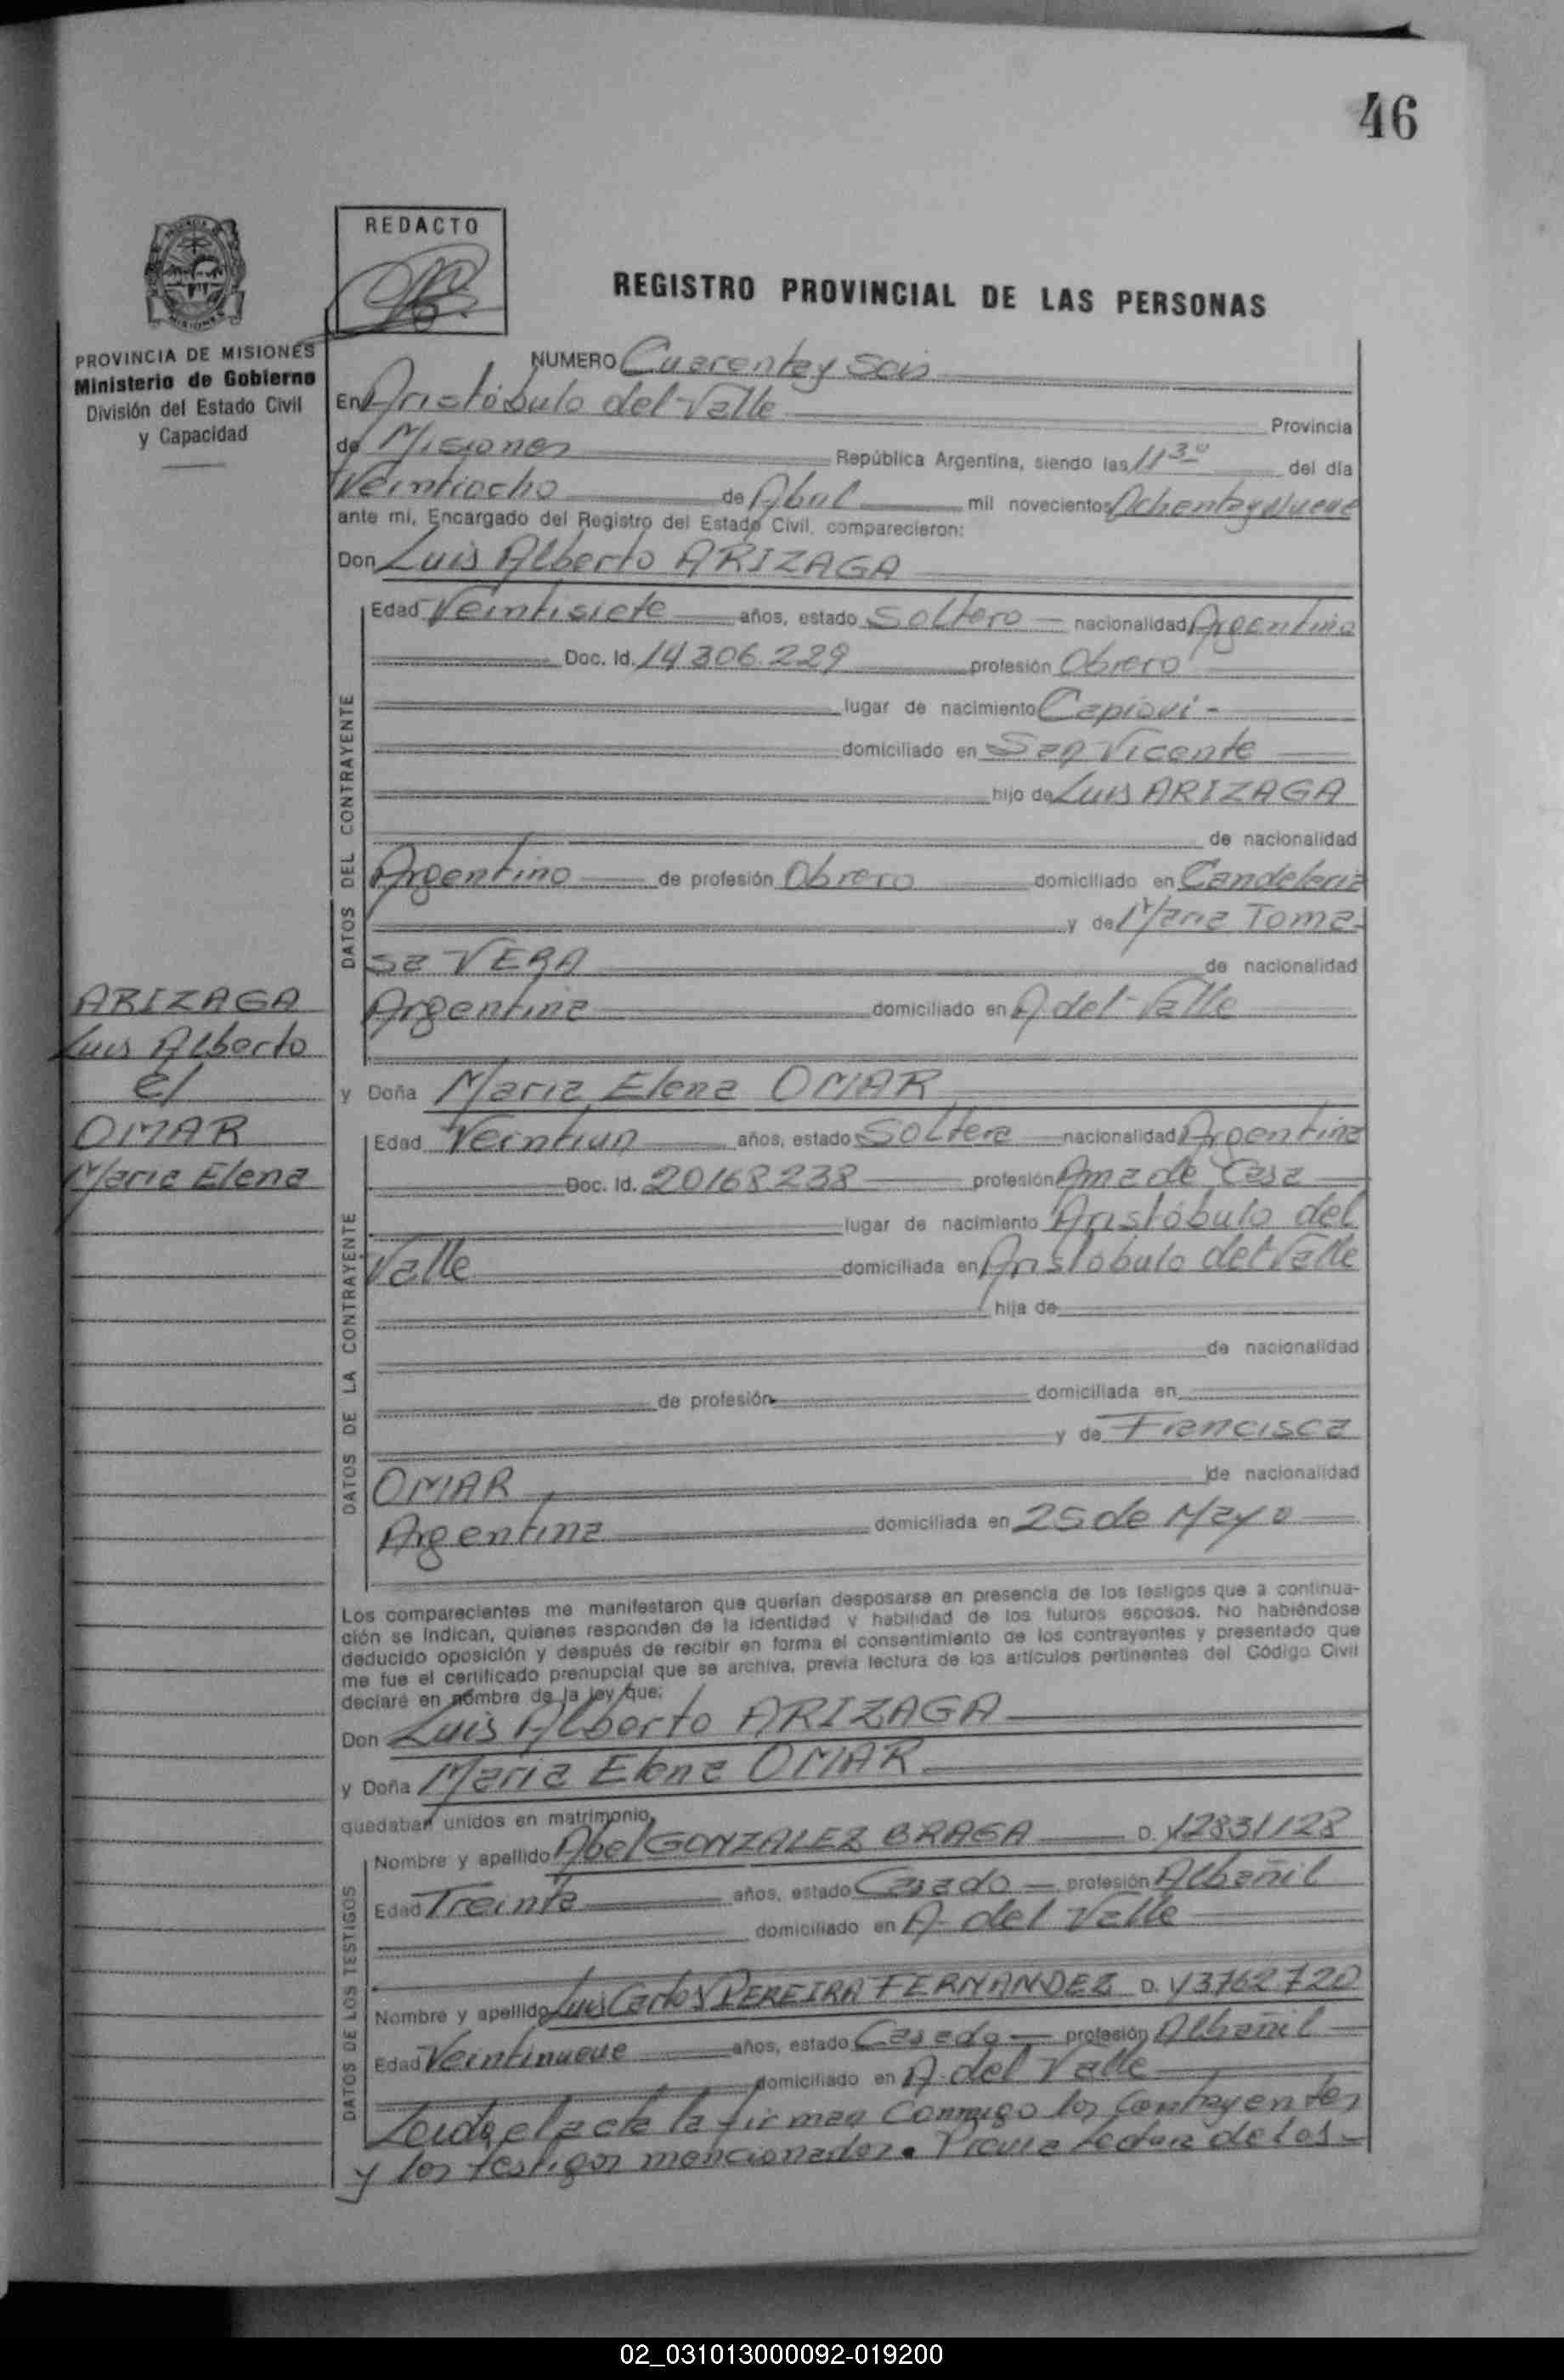 46
REDACTO
REGISTRO PROVINCIAL DE LAS PERSONAS
PROVINCIA DE MISIONES
Ministerio de Gobierno
División del Estado Civil
y Capacidad
NUMERO Cuarenta y Seis
En Aristóbulo del Valle Provincia
de Misiones República Argentina, siendo las 11 30 del día
Veintiocho de Abril mil novecientos Ochenta y Nueve
ante mí, Encargado del Registro del Estado Civil, comparecieron:
Don Luis Alberto ARIZAGA
DATOS DEL CONTRAYENTE
Edad Veintisiete años, estado Soltero nacionalidad Argentino
Doc. Id. 14.306.229 profesión Obrero
lugar de nacimiento Capioví -
domiciliado en San Vicente
hijo de Luis ARIZAGA
de nacionalidad
Argentino de profesión Obrero domiciliado en Candelaria
y de Maria Toma-
sa VERA de nacionalidad
Argentina domiciliado en A. del Valle
ARIZAGA
Luis Alberto
c/
OMAR
Maria Elena
y Doña Maria Elena OMAR
DATOS DE LA CONTRAYENTE
Edad Veintiun años, estado Soltera nacionalidad Argentina
Doc. Id. 20168.238 profesión Ama de Casa
lugar de nacimiento Aristóbulo del
Valle domiciliada en Aristóbulo del Valle
hija de
de nacionalidad
de profesión domiciliada en
y de Francisca
OMAR de nacionalidad
Argentina domiciliada en 25 de Mayo
Los comparecientes me manifestaron que querían desposarse en presencia de los testigos que a continua-
ción se indican, quienes responden de la identidad y habilidad de los futuros esposos. No habiéndose
deducido oposición y después de recibir en forma el consentimiento de los contrayentes y presentado que
me fue el certificado prenupcial que se archiva, previa lectura de los artículos pertinentes del Código Civil
declaré en nombre de la ley que:
Don Luis Alberto ARIZAGA
y Doña Maria Elena OMAR
quedaban unidos en matrimonio.
DATOS DE LOS TESTIGOS
Nombre y apellido Abel GONZALEZ BRAGA D. 12831128
Edad Treinta años, estado Casado profesión Albañil
domiciliado en A. del Valle
Nombre y apellido Luis Carlos PEREIRA FERNANDEZ D. 13762720
Edad Veintinueve años, estado Casado profesión Albañil
domiciliado en A. del Valle
Leída el acta la firman Conmigo los Contrayentes
y los testigos mencionados. Previa lectura de los -
02_031013000092-019200